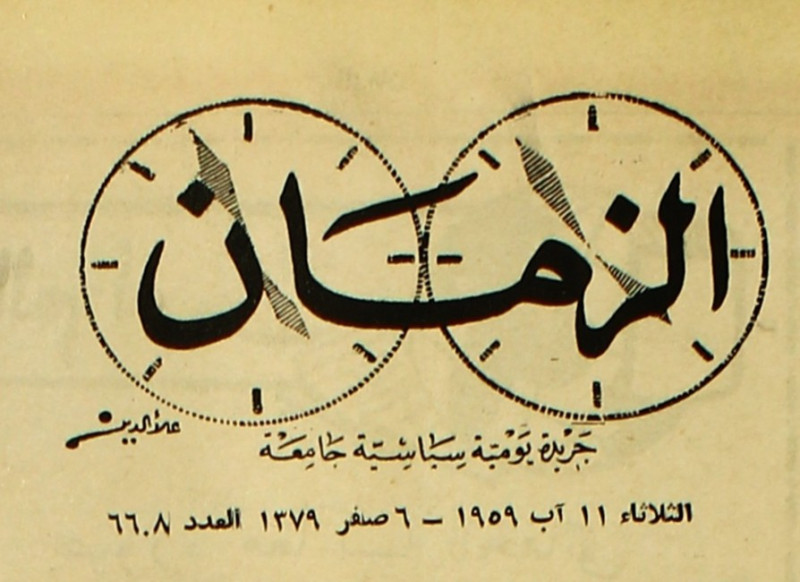 الزمان
علاء الدين
جَرِيْدَة يَوْمِيّة سِيَاسِيّة جَامِعَة
الثلاثاء ١١ آب ١٩٥٩ – ٦ صفر ١٣٧٩ العدد ٦٦٠٨